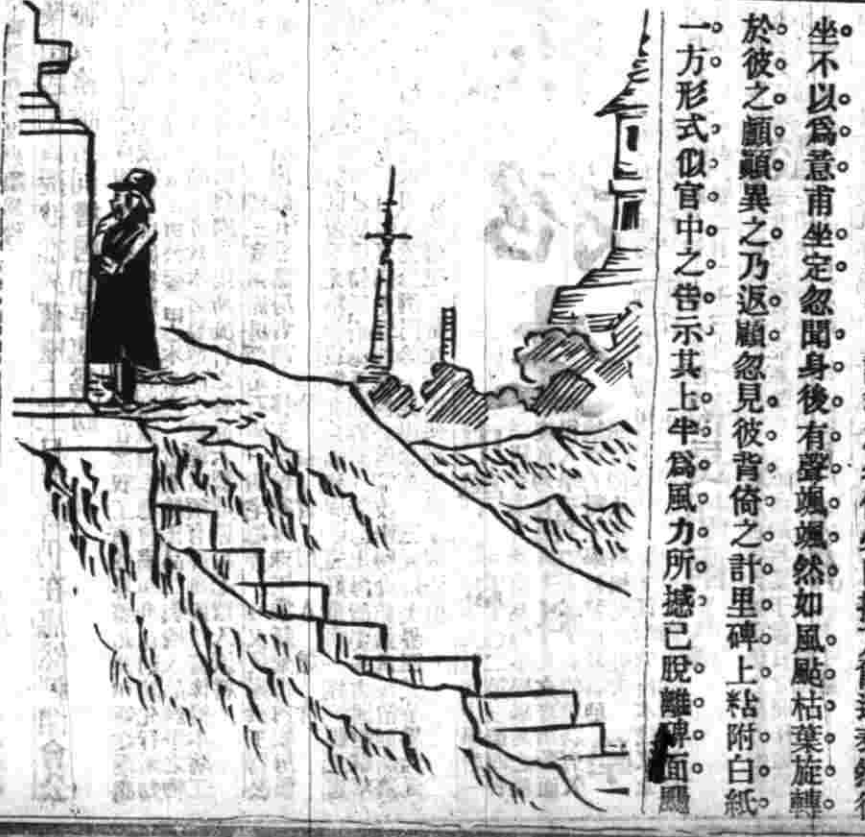 坐不以爲意甫坐定忽聞身後有聲颯颯然如風颭枯葉旋轉
於彼之顱顚異之乃返顧忽見彼背倚之計里碑上粘附白紙
一方形式似官中之告示其上半爲風力所撼已脫離碑面颺